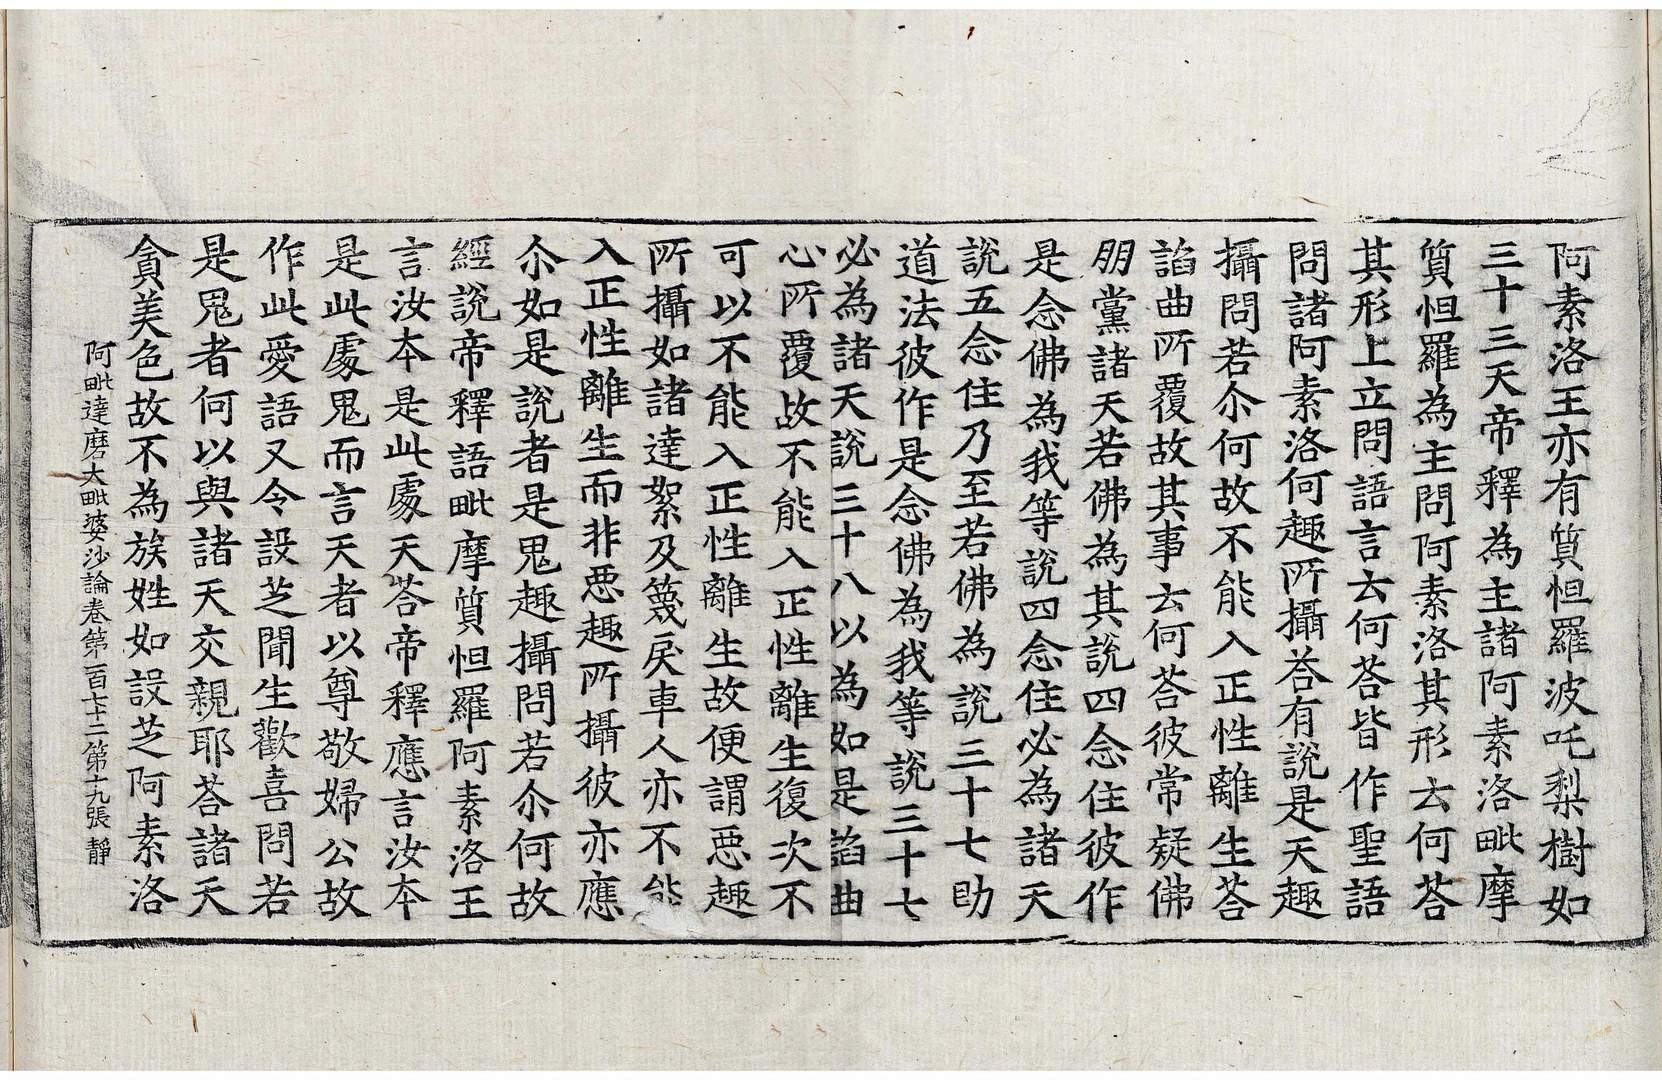 阿素洛王亦有質怛羅波吒梨樹如
三十三天帝釋為主諸阿素洛毗摩
質怛羅為主問阿素洛其形云何荅
其形上立問語言云何荅皆作聖語
問諸阿素洛何趣所攝荅有說是天趣
攝問若尒何故不能入正性離生荅
諂曲所覆故其事云何荅彼常疑佛
朋黨諸天若佛為其說四念住彼作
是念佛為我等說四念住必為諸天
說五念住乃至若佛為說三十七助
道法彼作是念佛為我等說三十七
必為諸天說三十八以為如是諂曲
心所覆故不能入正性離生復次不
可以不能入正性離生故便謂惡趣
所攝如諸達絮及篾戾車人亦不能
入正性離生而非惡趣所攝彼亦應
尒如是說者是鬼趣攝問若尒何故
經說帝釋語毗摩質怛羅阿素洛王
言汝本是此處天荅帝釋應言汝本
是此處鬼而言天者以尊敬婦公故
作此愛語又令設芝聞生歡喜問若
是鬼者何以與諸天交親耶荅諸天
貪美色故不為族姓如設芝阿素洛
阿毗達磨大毗婆沙論卷第一百七十二第十九張 靜